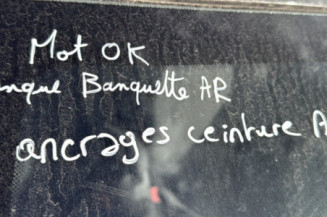 Mot OK
nque Banquette AR
ancrages ceinture A